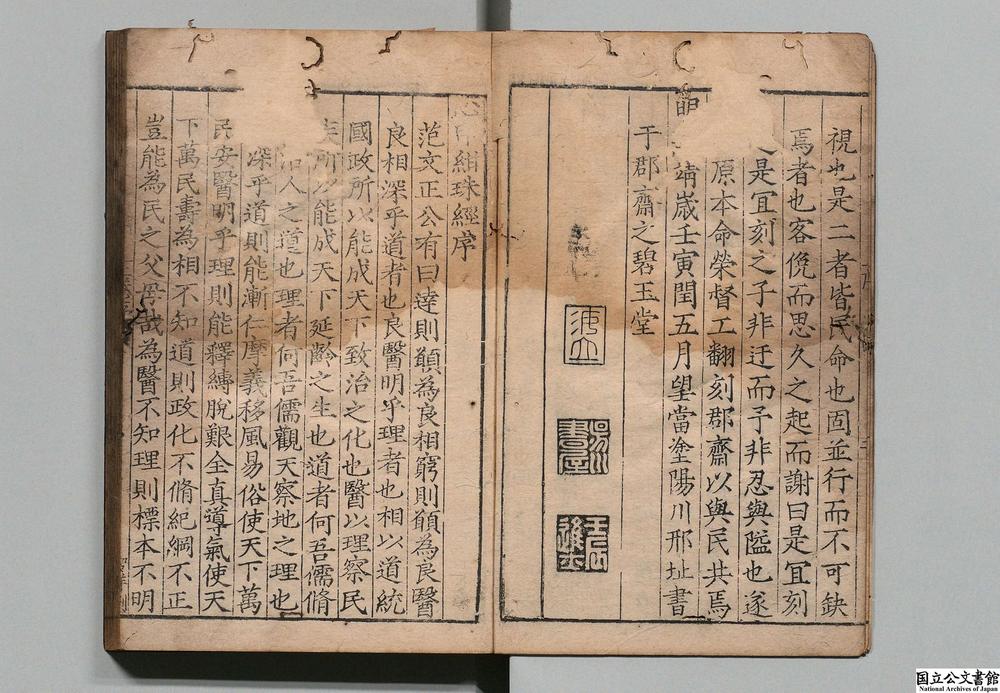 視也是二者皆民命也固並行而不可缺
焉者也客俛而思久之起而謝曰是宜刻
是宜刻之子非迂而予非忍與隘也遂
原本命榮督工翻刻郡齋以與民共焉
靖歲壬寅閏五月望當塗陽川邢址書
于郡齋之碧玉堂
紺珠經序
范文正公有曰達則願為良相窮則願為良醫
良相深乎道者也良醫明乎理者也相以道統
國政所以能成天下致治之化也醫以理察民
所以能成天下延齡之生也道者何吾儒脩
人之道也理者何吾儒觀天察地之理也
深乎道則能漸仁摩義移風易俗使天下萬
民安醫明乎理則能釋縛脫艱全真導氣使天
下萬民壽為相不知道則政化不脩紀綱不正
豈能為民之父母哉為醫不知理則標本不明
国立公文書館
National Archives of Japan